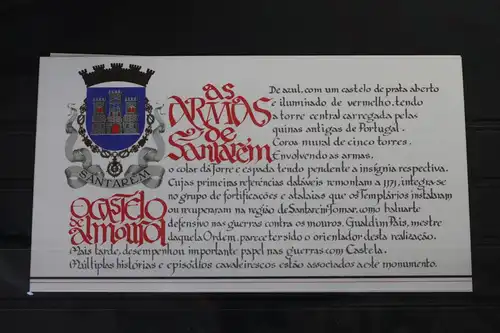 SANTARÉM
AS
ARMAS
de
Santarém
De azul, com um castelo de prata aberto
e iluminado de vermelho, tendo
a torre central carregada pelas
quinas antigas de Portugal.
Coroa mural de cinco torres.
Envolvendo as armas,
o colar da Torre e espada tendo pendente a insígnia respectiva.
O CASTELO
de
almourol
Cujas primeiras referências datáveis remontam a 1171, integra-se
no grupo de fortificações e atalaias que os Templários instalaram
ou recuperaram na região de Santarém-Tomar, como baluarte
defensivo nas guerras contra os mouros. Gualdim Pais, mestre
daquela Ordem, parece ter sido o orientador desta realização.
Mais tarde, desempenhou importante papel nas guerras com Castela.
Múltiplas histórias e episódios cavaleirescos estão associados a este monumento.